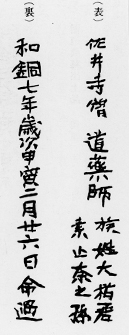 （表）
佐井寺僧 道薬師 族姓大楢君
素止奈之孫
（裏）
和銅七年歳次甲寅二月廿六日命過